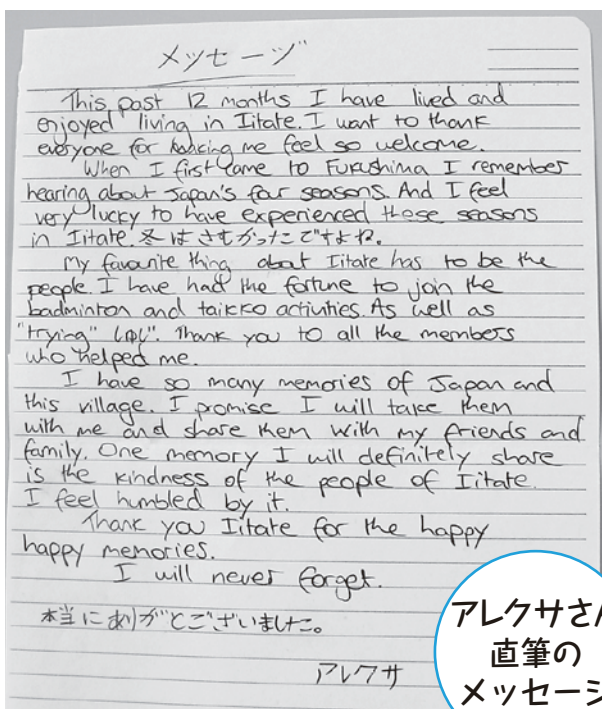 メッセージ
This past 12 months I have lived and
enjoyed living in Iitate. I want to thank
everyone for making me feel so welcome.
When I first came to Fukushima I remember
hearing about Japan's four seasons. And I feel
very lucky to have experienced these seasons
in Iitate. 冬はさむかったですよね。
My favourite thing about Iitate has to be the
people. I have had the fortune to join the
badminton and taikko activities. As well as
"trying" しゅじ". Thank you to all the members
who helped me.
I have so many memories of Japan and
this village. I promise I will take them
with me and share them with my friends and
family. One memory I will definitely share
is the kindness of the people of Iitate.
I feel humbled by it.
Thank you Iitate for the happy
happy memories.
I will never forget.
本当にありがとございました。
アレクサ
アレクサさん
直筆の
メッセージ